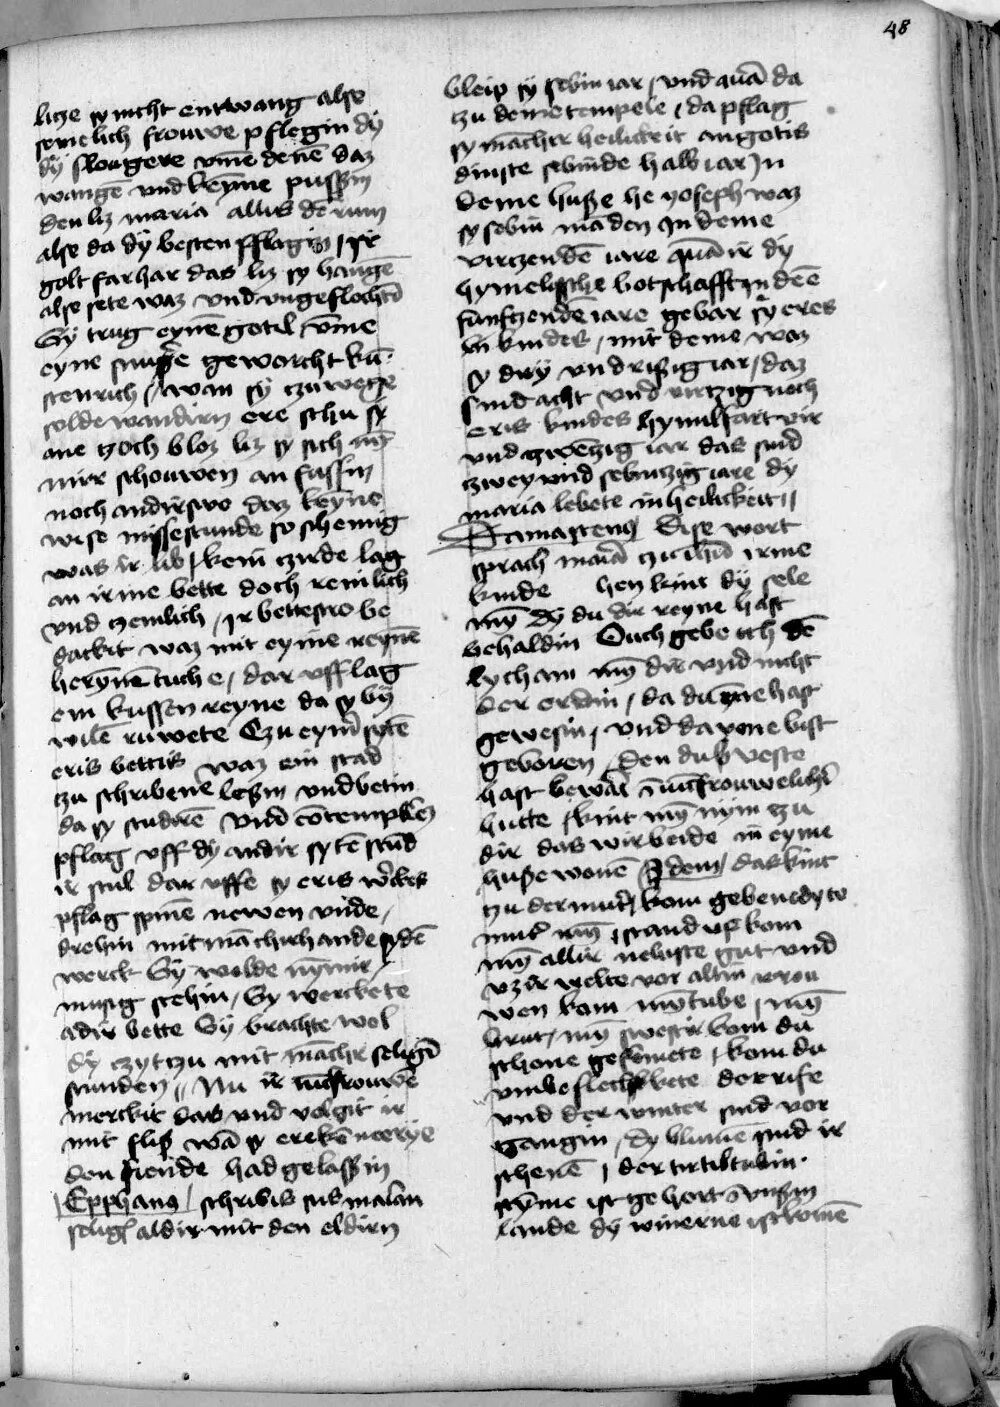 48
litze sy nicht entwang alse
semelich frouwe pflegin dy
dy slougere vm̄e denē daz
wangē vnd keyme pussin
den liz maria allis dē rum
alse da dy besten pflagin / ir
golt far har das liz sy hangē
alse sete waz vnd vngeflochtē
Sy trug eynē gotil vm̄e
eyne snure geworcht kū
stenrich / wan sy czu wege
solde wandirn ere schu sy
ane czoch bloz liz sy sich nit
mirr schouwen an fussin
noch andirswo daz keyne
wise missestunde so schemig
was ir lib / kein czirde lag
an irme bette doch reinlich
vnd czemlich / ir bettestro be
dackit waz mit eyme reynē
herynē tuche / dar vff lag
ein kussen reyne da sy by
wilē ruwete Czu eym̄ sytē
eris bettis waz ein stad
czu schribene lesin vnd betin
da sy studirē vnd cōtemplirē
pflag vff dy andir sytē stūd
ir stul dar vffe sy eris w̄ckes
pflag spinē newen vnde /
drehin mit māchirhande sydē
werck Sy wolde nȳmir
musig stehin / Sy werckete
adir bette Sy brachte wol
dy czyt czu mit mācħ seligē
stunden // Nu ir iūcfrouwē
merckit das vnd volgit ir
mit flis wā sy
den friende had gelassin
Epyphanꝰ / schribis sus malan
selig aldir mit den eldirn
bleip sy sebin iar / vnd quā da
czu deme tempele / da pflag
sy mācħ heilickeit an gotis
dinste sebinde halb iar In
deme huse he yoseph waz
sy sebin māden In deme
virczendē iare quā ir dy
hymelische botschafft In dēe
funfczendē iare gebar sy eres
kindes / mit deme waz
sy dry vnd risig iar / daz
sind acht vnd virczig noch
eris kindes hymilfart vir
vnd czwēczig iar das sind
czwey vnd sebinczig iare dy
maria lebete in heilickeit //
Damascenꝰ Dise wort
sprach maria czu ihū irme
kinde hen kint dy sele
mȳ dy du dir reyne hast
behaldin Ouch gebe ich dē
lycham mȳ dir vnd nicht
der erdin / da du inne hast
gewesin / vnd da vone bist
geboren / den du veste
hast bewart iūcfrouwelichē
hutte / kint mȳ nym czu
dir das wir beide in eyme
huse wonē Idem / das kint
czu der mut̄ kom gebenedyte
mut̄ mȳ / stand uf kom
mȳ allir nehiste gut vnd
vzir welte vor allin vrou
wen kom mȳ tube / mȳ
brut / mȳ swestir kom du
schone gesūnete / kom du
vnbeflechkete der rife
vnd der winter sind vor
gangin / dy blumē sind ir
schenē / der turtiltubin
stȳme ist gehort ī vnsim
lande dy winerne ist komē